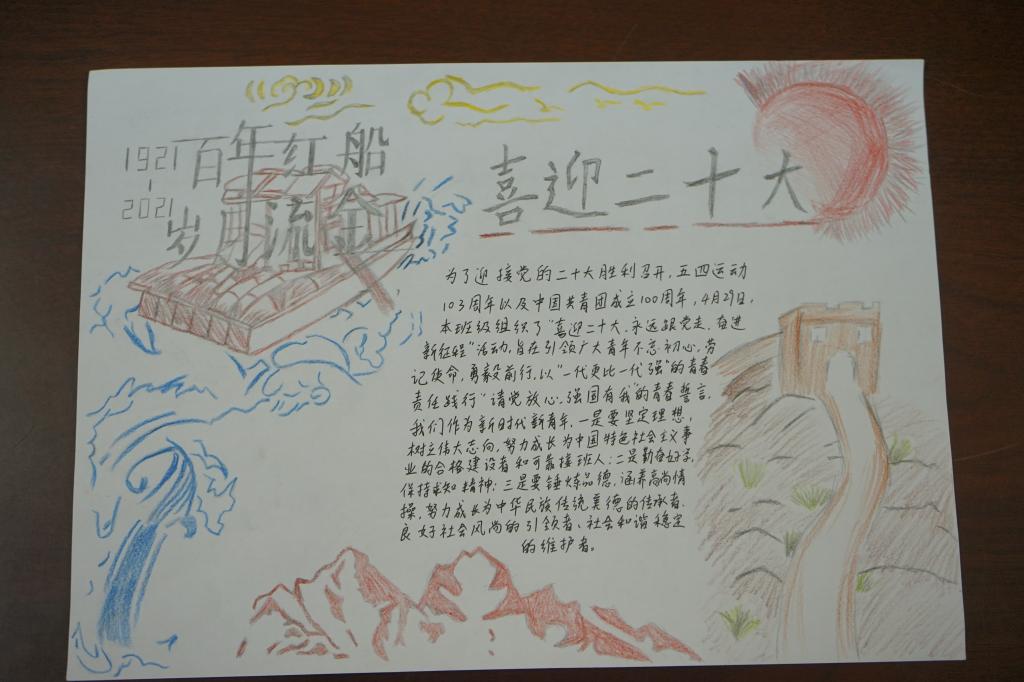 1921
-
2021
百年红船
岁月流金
喜迎二十大
为了迎接党的二十大胜利召开,五四运动
103周年以及中国共青团成立100周年,4月29日,
本班级组织了“喜迎二十大、永远跟党走、奋进
新征程”活动,旨在引领广大青年不忘初心,劳
记使命,勇毅前行,以“一代更比一代强”的青春
责任践行“请党放心,强国有我”的青春誓言。
我们作为新时代新青年,一是要坚定理想,
树立伟大志向,努力成长为中国特色社会主义事
业的合格建设者和可靠接班人;二是勤奋好学,
保持求知精神;三是要锤炼品德,涵养高尚情
操,努力成长为中华民族传统美德的传承者、
良好社会风尚的引领者、社会和谐稳定
的维护者。